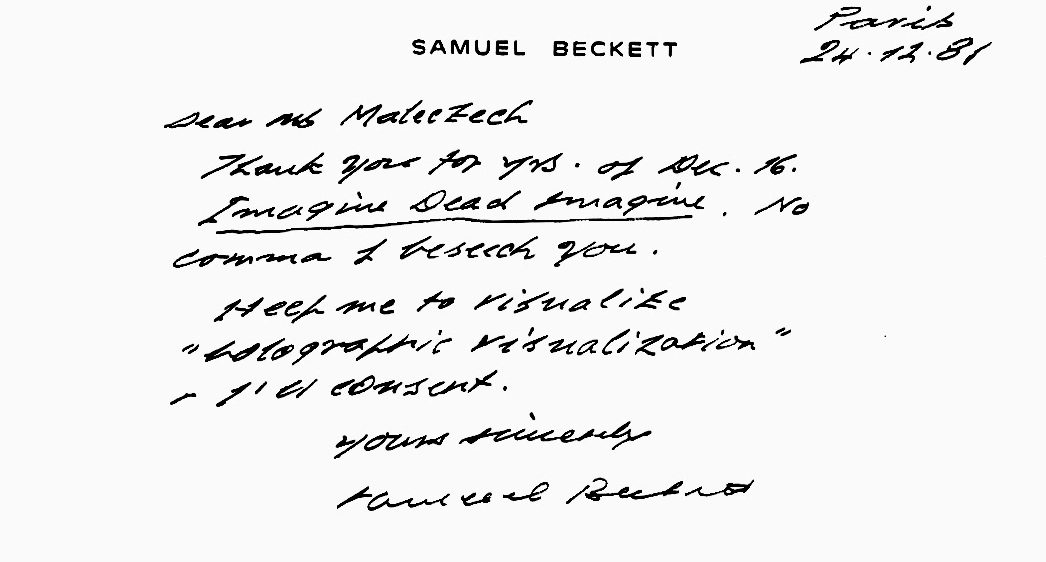 Paris
SAMUEL BECKETT
24.12.81
Dear Ms Maleczech
Thank you for yrs. of Dec. 16.
Imagine Dead Imagine. No
comma I beseech you.
Help me to visualize
"holographic visualization"
- I'll consent.
Yours sincerely
Samuel Beckett